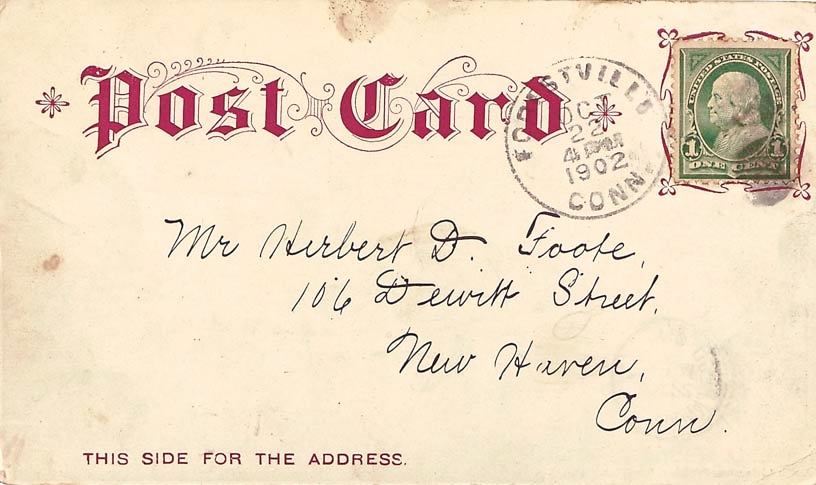 Post Card
FORESTVILLE
OCT
22
1902
CONN.
UNITED STATES POSTAGE
1 1
ONE CENT
Mr Herbert D. Foote,
106 Dewitt Street.
New Haven,
Conn.
THIS SIDE FOR THE ADDRESS.